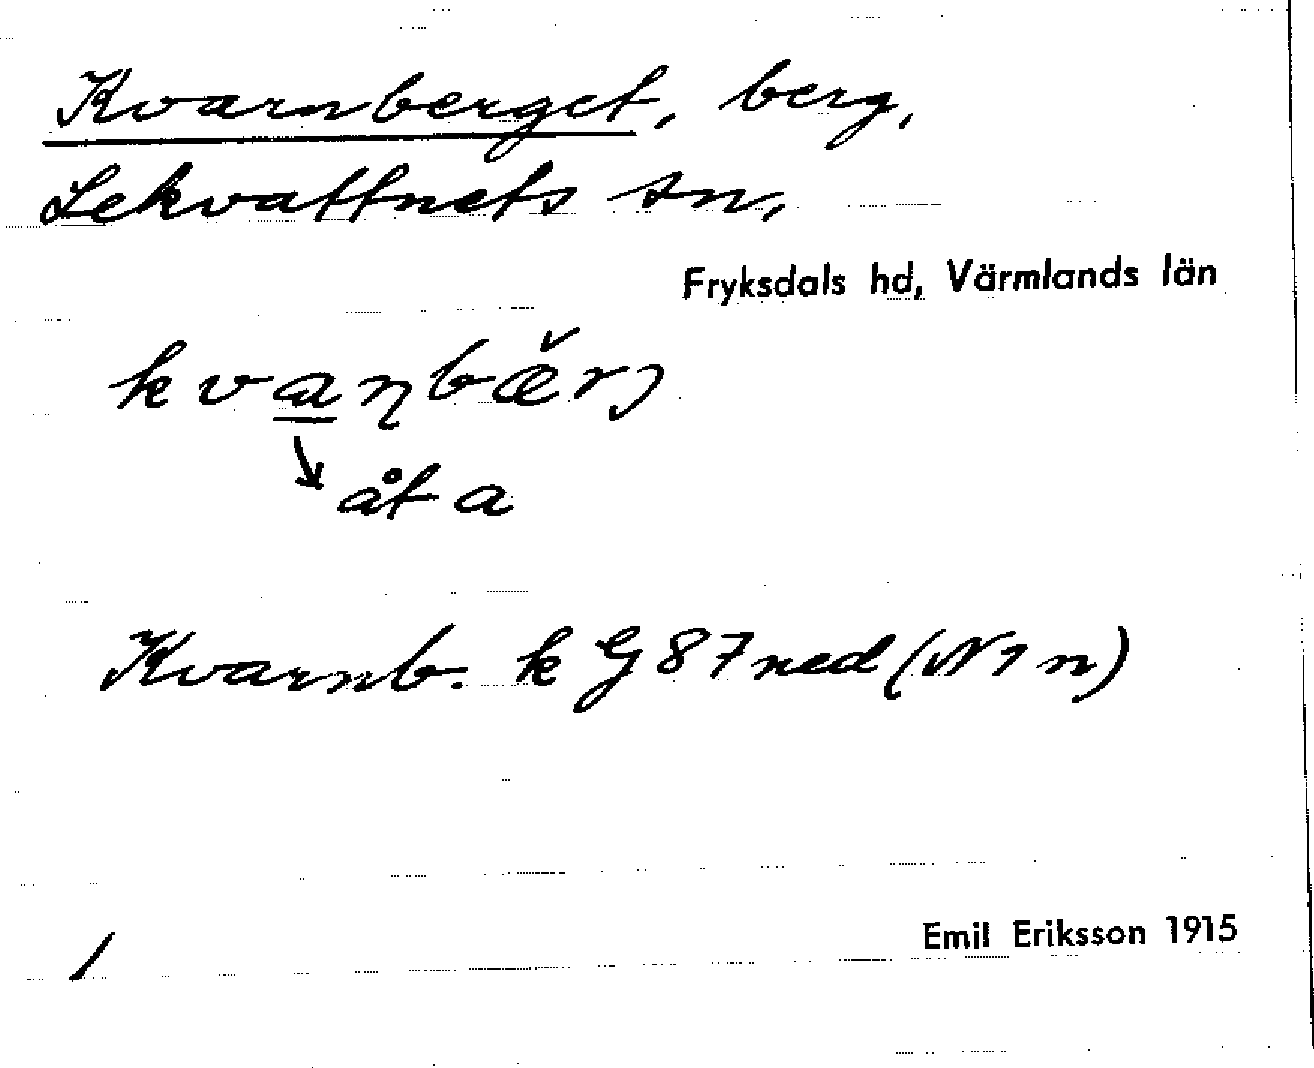 Kvarnberget, berg,
Lekvattnets sn,
Fryksdals hd, Värmlands län
kvaɳbæ̌rj
åt a
Kvarnb. k G 87 ned (N 1 n)
Emil Eriksson 1915